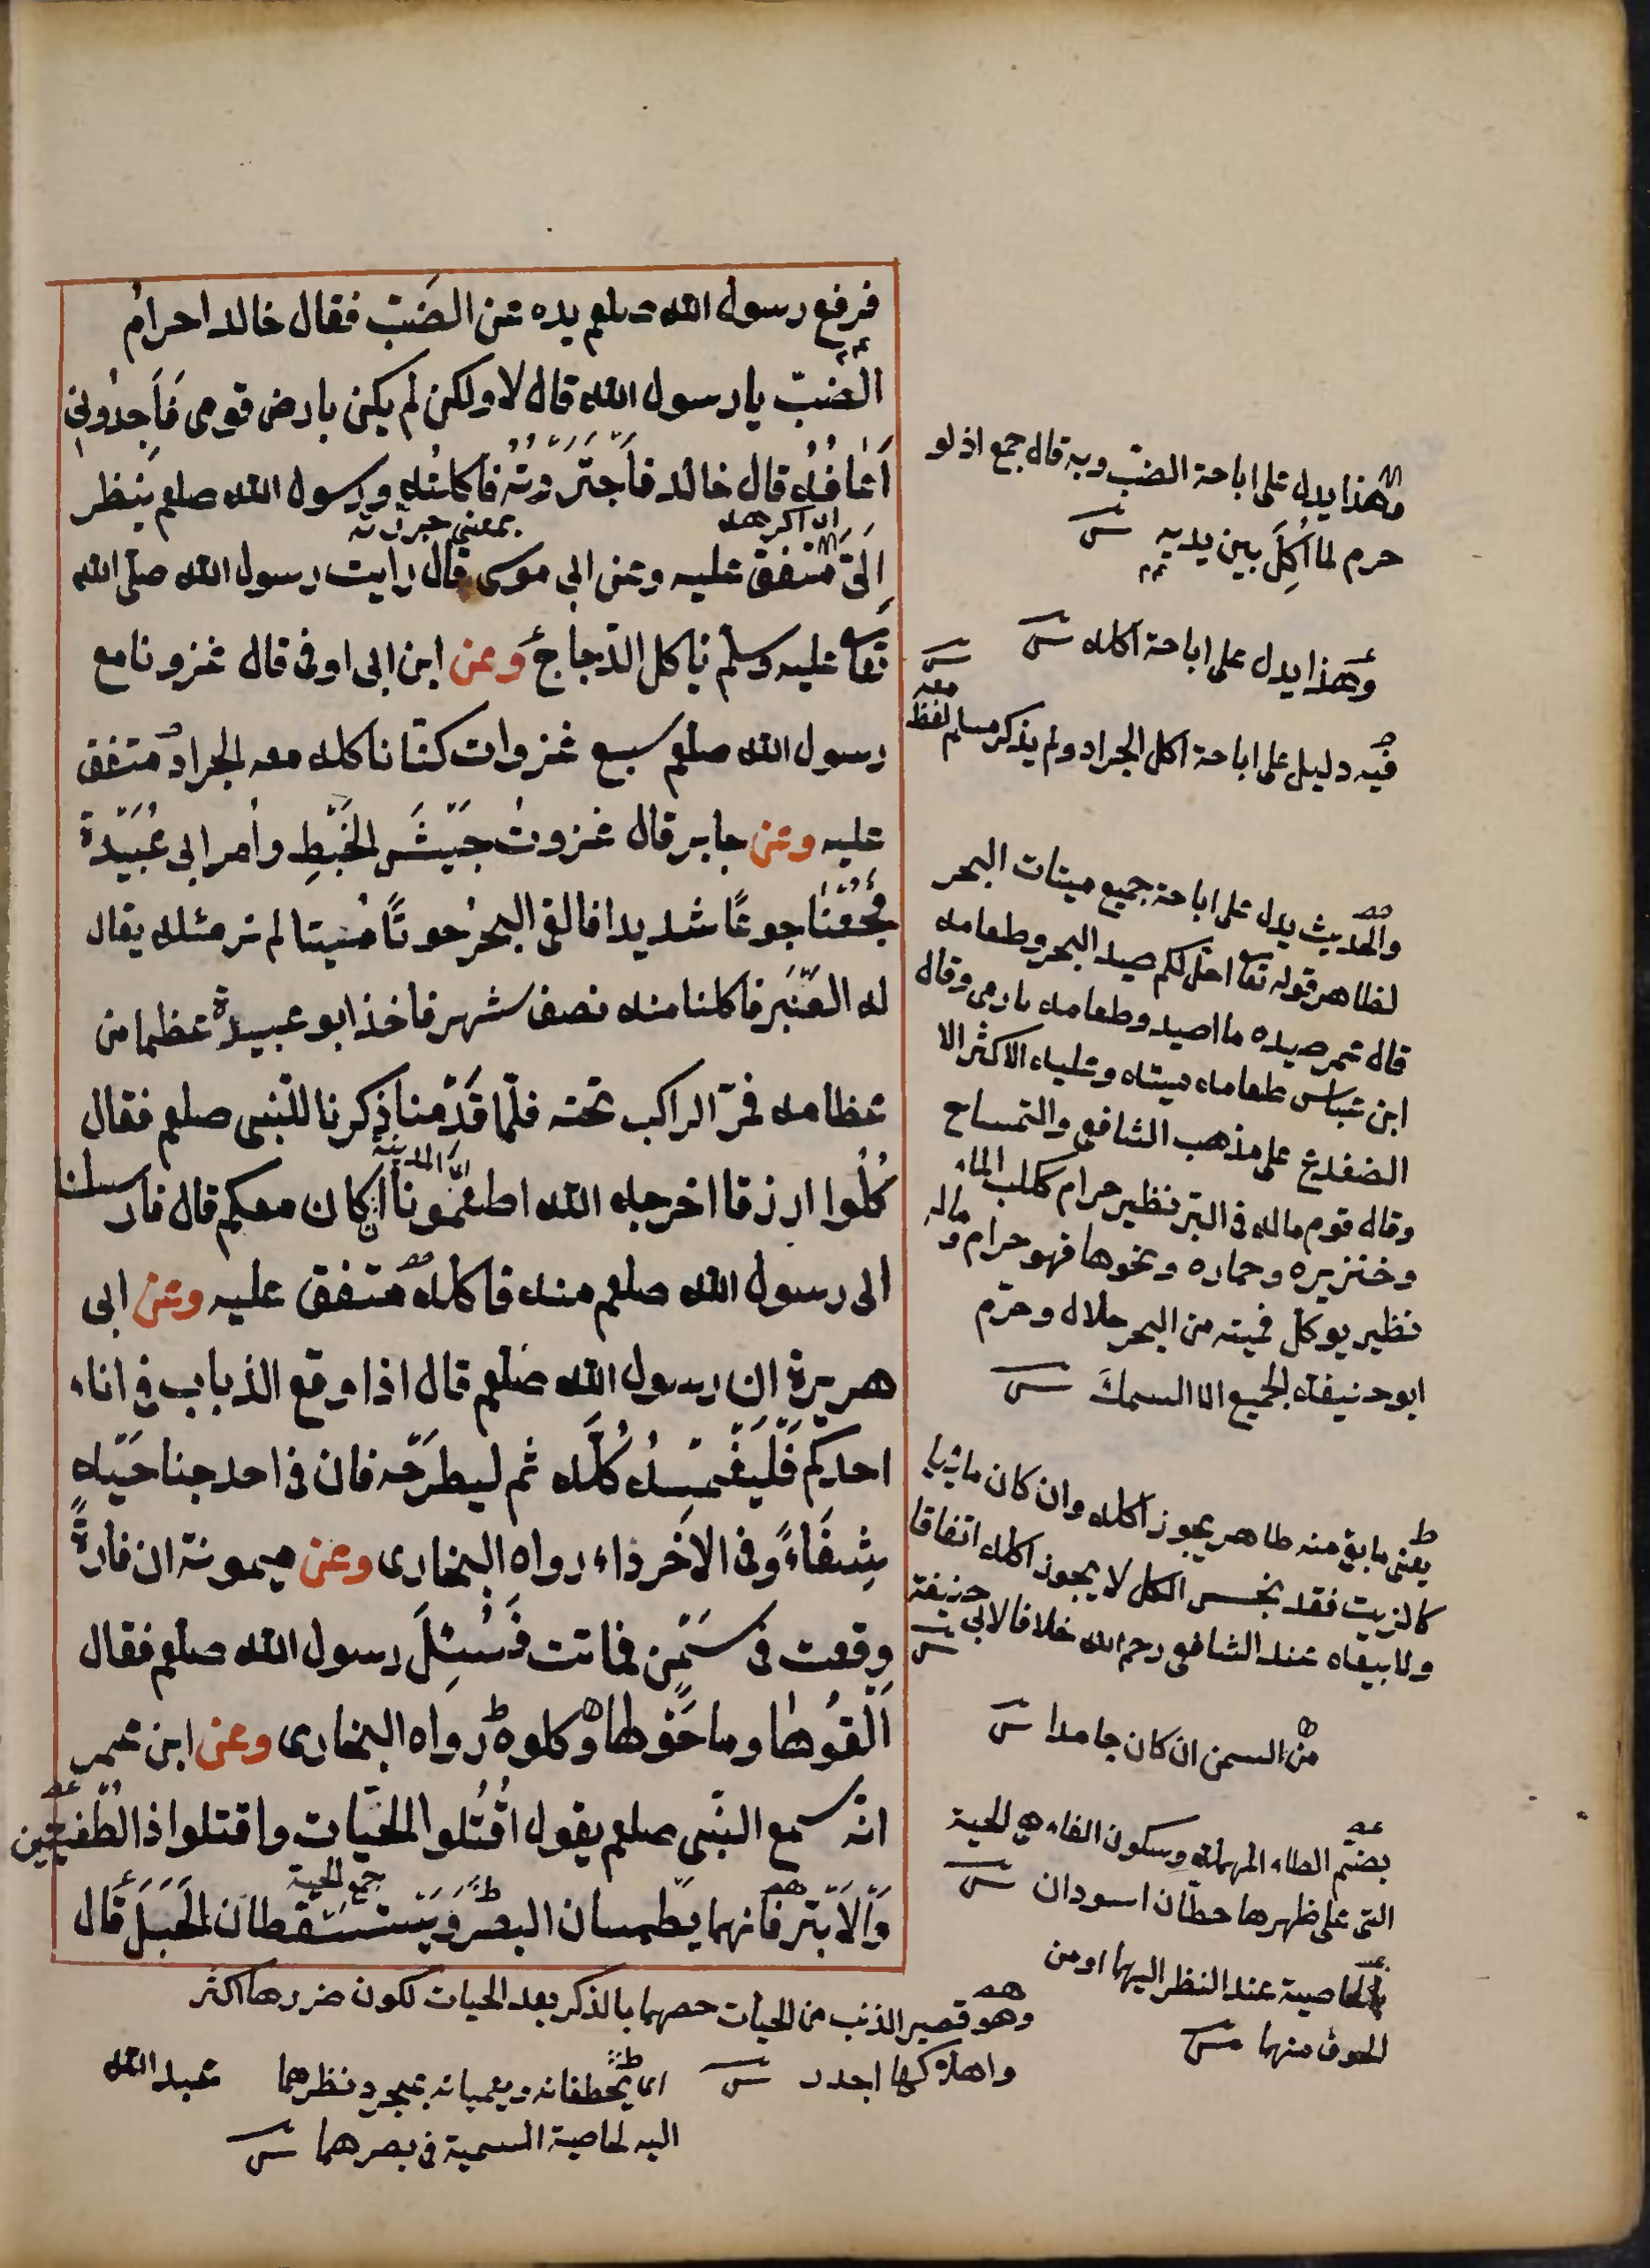 فرفع رسول الله صلعم يده عن الضب فقال خالد احرام
الضب يا رسول الله قال لا ولكن لم يكن بارض قومى فاجدونى
اعافه قال خالد فاجتررته فاكلته ورسول الله صلعم ينظر
اى اكرهه
بمعنى جررته
الى متفق عليه وعن ابى موسى قال رايت رسول الله صلى الله
تعا عليه وسلم ياكل الدجاج وعن ابن ابى اوفى قال غزونا مع
رسول الله صلعم سبع غزوات كنا ناكله معه الجراد متفق
عليه وعن جابر قال غزوت جيش الخبط وامر ابى عبيدة
فجعنا جوعا شديدا فالقى البحر حوتا ميتا لم نر مثله يقال
له العنبر فاكلنا منه نصف شهر فاخذ ابو عبيدة عظما من
عظامه فمر الراكب تحته فلما قدمنا ذكرنا للنبى صلعم فقال
اى المدينة
كلوا ارزقا اخرجه الله اطعمونا ان كان معكم قال فارسلنا
الى رسول الله صلعم منه فاكله متفق عليه وعن ابى
هريرة ان رسول الله صلعم قال اذا وقع الذباب فى اناء
احدكم فليغمسه كله ثم ليطرحه فان فى احد جناحيه
شفاء وفى الاخر داء رواه البخارى وعن ميمونة ان فارة
وقعت فى سمن فماتت فسئل رسول الله صلعم فقال
القوها وما حولها وكلوه رواه البخارى وعن ابن عمر
انه سمع النبى صلعم يقول اقتلوا الحيات واقتلوا ذا الطفيتين
جمع الحية
والابتر فانهما يطمسان البصر ويستسقطان الحبل قال
وهذا يدل على اباحة الضب وبه قال جمع اذ لو
حرم لما اكل بين يديه ش
وهذا يدل على اباحة اكله ش
فيه دليل على اباحة اكل الجراد ولم يذكر مسلم لفظ
معه ش
والحديث يدل على اباحة جميع ميتات البحر
لظاهر قوله تعا احل لكم صيد البحر وطعامه
قال عمر صيده ما اصيد وطعامه ما رمى وقال
ابن عباس طعامه ميتته وعليه الاكثر الا
الضفدع على مذهب الشافعى والتمساح
وقال قوم ماله فى البر نظير حرام ككلب الماء
وخنزيره وحماره ونحوها فهو حرام وماله
نظير يوكل فميته من البحر حلال وحرم
ابو حنيفة الجميع الا السمك ش
يعنى ما بقى منه طاهر يجوز اكله وان كان مائيا
كالزيت فقد نجس الكل لا يجوز اكله اتفاقا
ولا بيعه عند الشافعى رحم الله خلافا لابى حنيفة ش
من السمن ان كان جامدا ش
بضم الطاء المهملة وسكون الفاء هى الحية
التى على ظهرها خطان اسودان ش
بالخاصية عند النظر اليهما او من
الخوف منهما ش
وهو قصير الذنب من الحيات خصهما بالذكر بعد الحيات لكون ضررها اكثر
واهلاكها اجدر ش
اى يخطفانه ويعميانه بمجرد نظرهما
اليه لخاصية السمية فى بصرهما ش
عبد الله